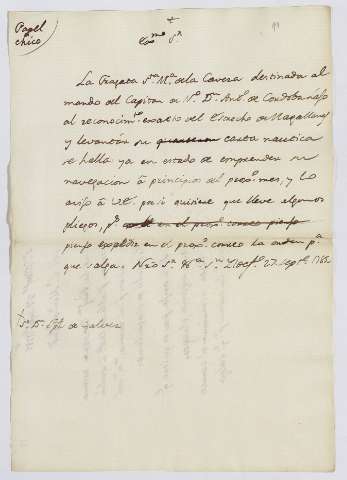 Papel
chico
+
Exmo. Sr.
La Fragata Sta. Ma. de la Caveza destinada al
mando del Capitan de No. Dn. Anto. de Cordoba Laso
al reconocimto. exacto del Estrecho de Magallanes
y levantar su carta nautica
se halla ya en estado de emprender su
navegacion á principios del proxo. mes, y lo
aviso á V.E. por si quisiese que lleve algunos
pliegos, ps. en el proxo. correo pienso
pienso expedir en el proxo. correo la orden pa.
que salga. Sn. Ildefo. 27. Septe. 1785.
Sr. Dn. de Galvez